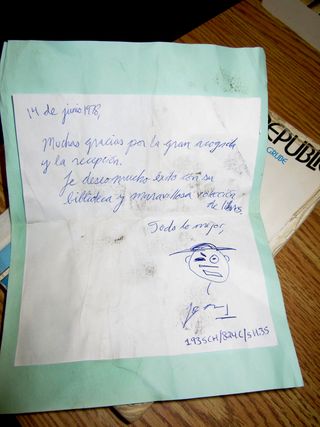 14 de junio 1978,
Muchas gracias por la gran acogida
y la recepción.
Le deseo mucho éxito con su
biblioteca y maravillosa colección
de libros.
Todo lo mejor,
193SCH/824C/S1135
REPUBLI
GRUBE